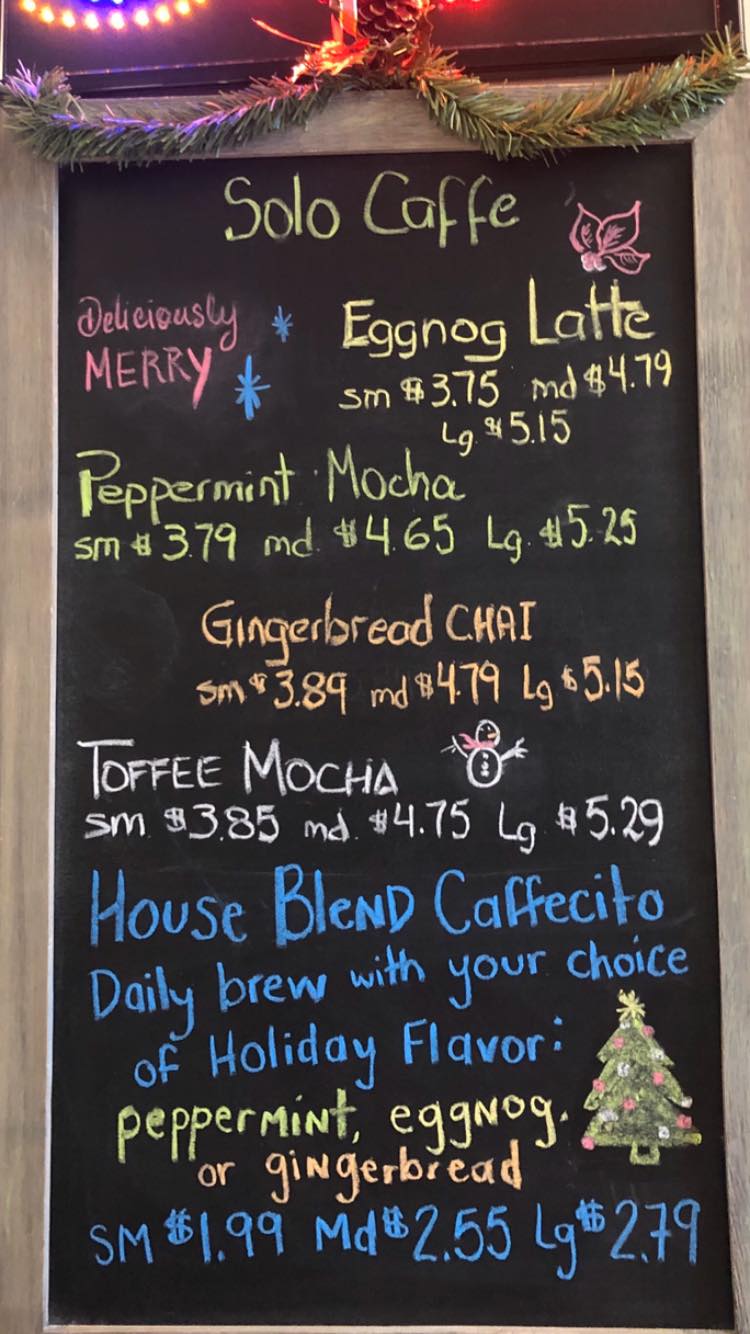 Solo Caffe
Deliciously
MERRY
Eggnog Latte
sm $3.75 md $4.79
Lg $5.15
Peppermint Mocha
sm $3.79 md. $4.65 Lg. $5.25
Gingerbread CHAI
sm $3.89 md $4.79 Lg $5.15
TOFFEE MOCHA
sm. $3.85 md. $4.75 Lg. $5.29
HOUSE BLEND Caffecito
Daily brew with your choice
of Holiday Flavor:
peppermint, eggnog.
or gingerbread
SM $1.99 Md $2.55 Lg $2.79